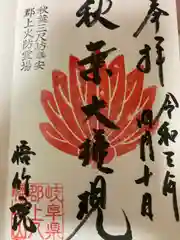 奉拝
令和三年
四月十日
秋葉大権現
秋葉三尺坊奉安
郡上火防霊場
悟竹院
岐阜県
郡上